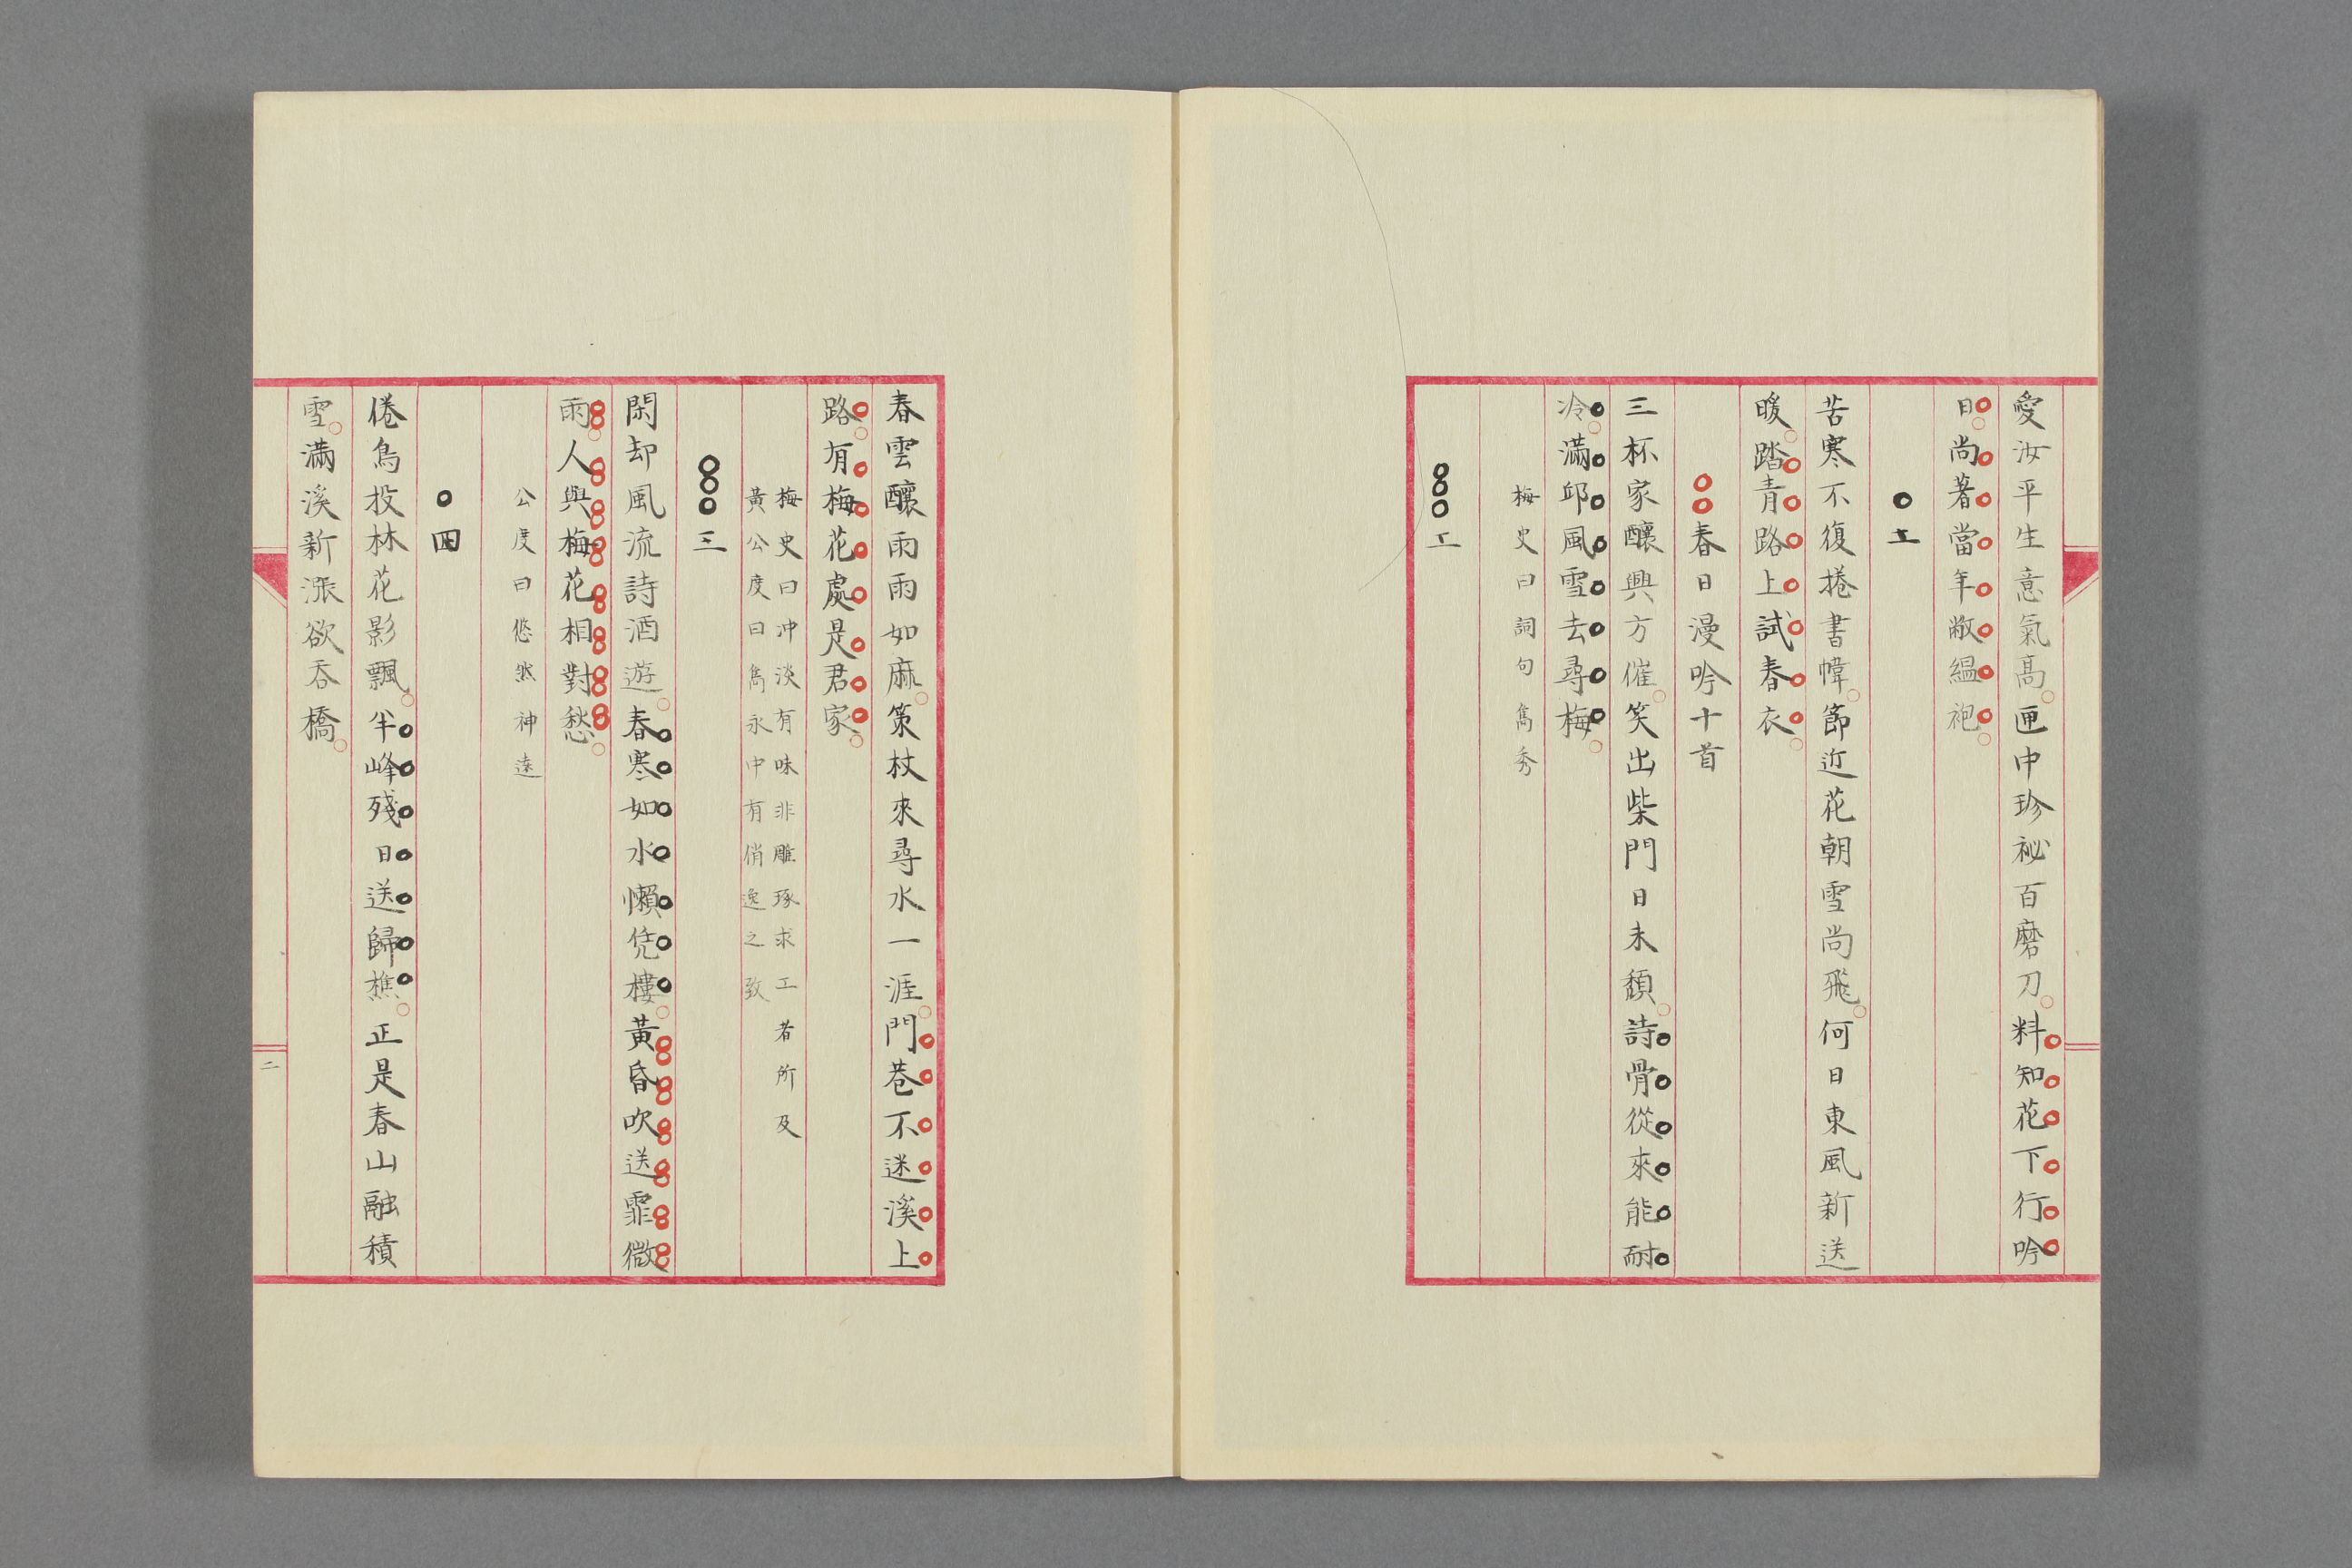 愛汝平生意氣高匣中珍祕百磨刀料知花下行吟
日尚著當年敝縕袍
土
苦寒不復捲書幃節近花朝雪尚飛何日東風新送
暖踏青路上試春衣
春日漫吟十首
三杯家釀興方催笑出柴門日未頹詩骨從來能耐
冷滿邱風雪去尋梅
梅史曰詞句雋秀
工
春雲釀雨雨如麻策杖來尋水一涯門巷不迷溪上
路有梅花處是君家
梅史曰沖淡有味非雕琢求工者所及
黃公度曰雋永中有俏逸之致
三
閑却風流詩酒遊春寒如水懶凭樓黃昏吹送霏微
雨人與梅花相對愁
公度曰悠然神遠
四
倦鳥投林花影飄半峰殘日送歸樵正是春山融積
雪滿溪新漲欲吞橋
二